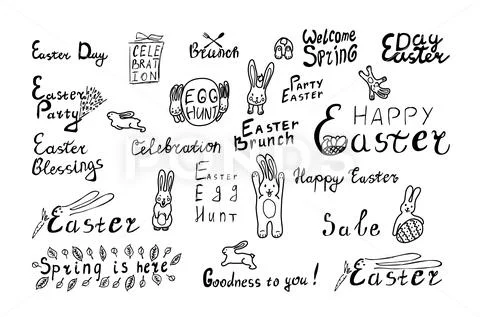 Easter Day
CELE
BRAT
ION
Brunch
Welcome
Spring
Day
Easter
Easter
Party
EGG
HUNT
Party
Easter
HAPPY
Easter
Easter
Blessings
Celebration
Easter
Brunch
Easter
Egg
Hunt
Happy Easter
Easter
Sale
Spring is here
Goodness to you!
Easter